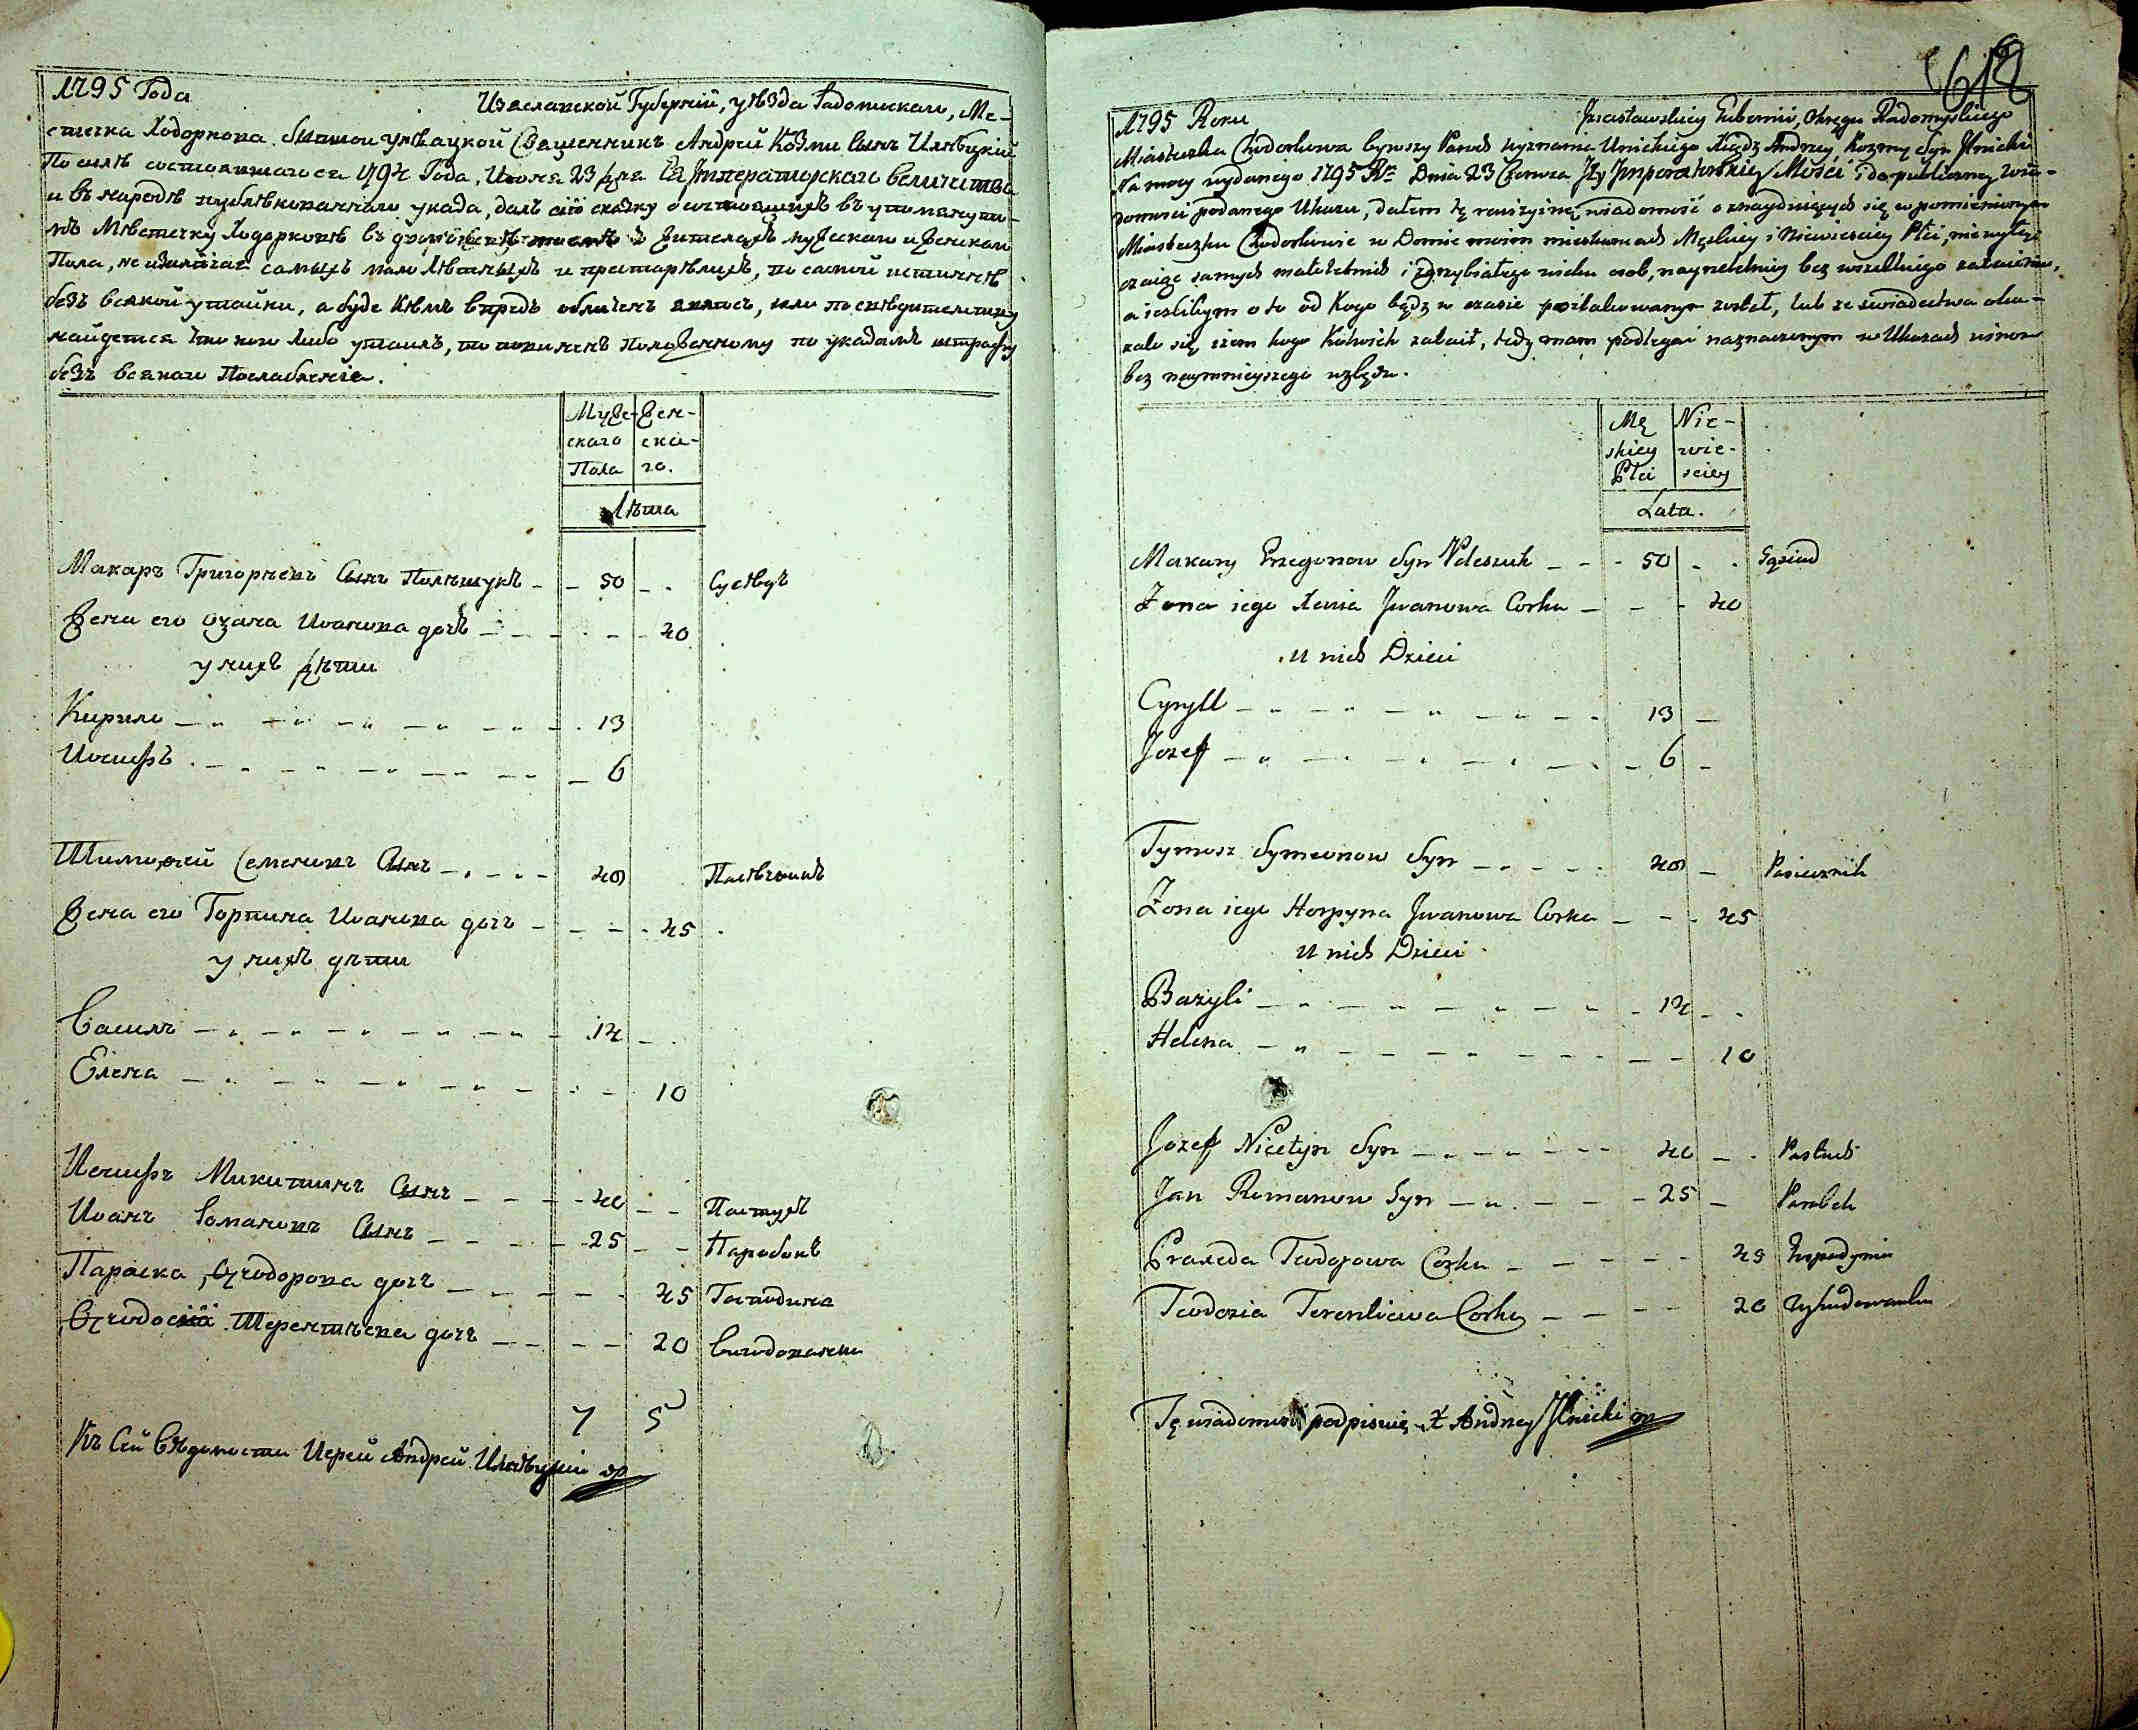 1795 Года Изяславской Губерніи, уѣзда Радомискаго, Ме-
стечка Ходоркова бывшои Унѣацкой Священникъ Андрей Козми Сынъ Илнѣцкій
По силѣ состоявшагося 1794 Года, Июня 23 Дня Ея Императорскаго величества
и въ народѣ публѣкованнаго указа, далъ сію сказку о состоящихъ въ упомянуто-
мъ Мѣстечку Ходорковѣ въ жителяхъ мужескаго и женскаго
Пола, не самыхъ малолѣтныхъ и престарѣлихъ, по самой истиннѣ
безъ всякой утайки, а буде кѣмъ впредъ обличенъ явлюсь, или по свѣдителству
найдется что кого либо утаилъ, то повиненъ положенному по указамъ штрафу
безъ всякаго Послабленія.
Муже- Жен-
скаго ска-
Пола го.
Лѣта
Макаръ Григорьевъ Сынъ Полѣшукъ - - 50 - - Сусѣдъ
Жена его Иванова дочъ - - - - 40
у нихъ Дѣти
Кирило - - - - 13
Иосифъ - - - - 6
Тимофей Семеновъ Сынъ - - - - 40 Пасѣчникъ
Жена его Горпина Иванова дочъ - - - - 45
у нихъ дѣти
Василъ - - - - 14 -
Елена - - - - 10
Иосифъ Микитинъ Сынъ - - - - 40 - - Пастухъ
Иванъ Романовъ Сынъ - - - - 25 - - Паробокъ
Параска Ѳеодорова дочъ - - - - 45 Господиня
Ѳеодосія Терентѣева дочъ - - - - 20
7 5
Къ Сей вѣдомости Иерей Андрей Илнѣцкій
618
1795 Roku Jzasławskiey Gubernii, Okręgu Radomyslskiego
Miasteczka Chodorkowa bywszy Paroch wyznania Unickiego Xiądz Andrzey Kozmy Syn Jlnicki
Na mocy wydanego 1795 Rr Dnia 23 Czerwca Jey Jmperatorskiey Mości i do publiczney wia-
domosci podanego Ukazu, dałem tę rewizyiną wiadomość o znayduiących się w pomienionym
Miasteczku Chodorkowie w Domie moim mieszkancach Męskiey i Niewiesciey Płci, nie wyłą-
czaiąc samych małoletnich i zgrzybiałego wieku osob, nayrzetelniey bez wszelkiego zataienia,
a iesliбym o to od kogo bądz w czasie poszlakowanym został, lub ze swiadectwa oka-
zało się iżem kogo kolwiek zataił, tedy mam podlegać naznaczonym w Ukazach winom
bez naymnieyszego względu.
Mę Nie-
skiey wie-
Płci sciey
Lata.
Makary Hregorow Syn Poleszuk - - - 50 - - Sąsiad
Zona iego Xenia Jwanowa Corka - - - 40
U nich Dzieci
Cyryll - - - - 13 -
Jozef - - - - 6 -
Tymosz Symeonow Syn - - - - 40 - Pasiecznik
Zona iego Horpyna Jwanowa Corka - - - 45
U nich Dzieci
Bazyli - - - - 14 - -
Helena - - - - 10
Jozef Nicetyn Syn - - - - 40 - - Pastuch
Jan Romanow Syn - - - - 25 - Parobek
Praxeda Teodorowa Corka - - - - 45 Hospodynia
Teodozia Terentiewa Corka - - - - 20
Tę wiadomość podpisuię X Andrzey Jlnicki